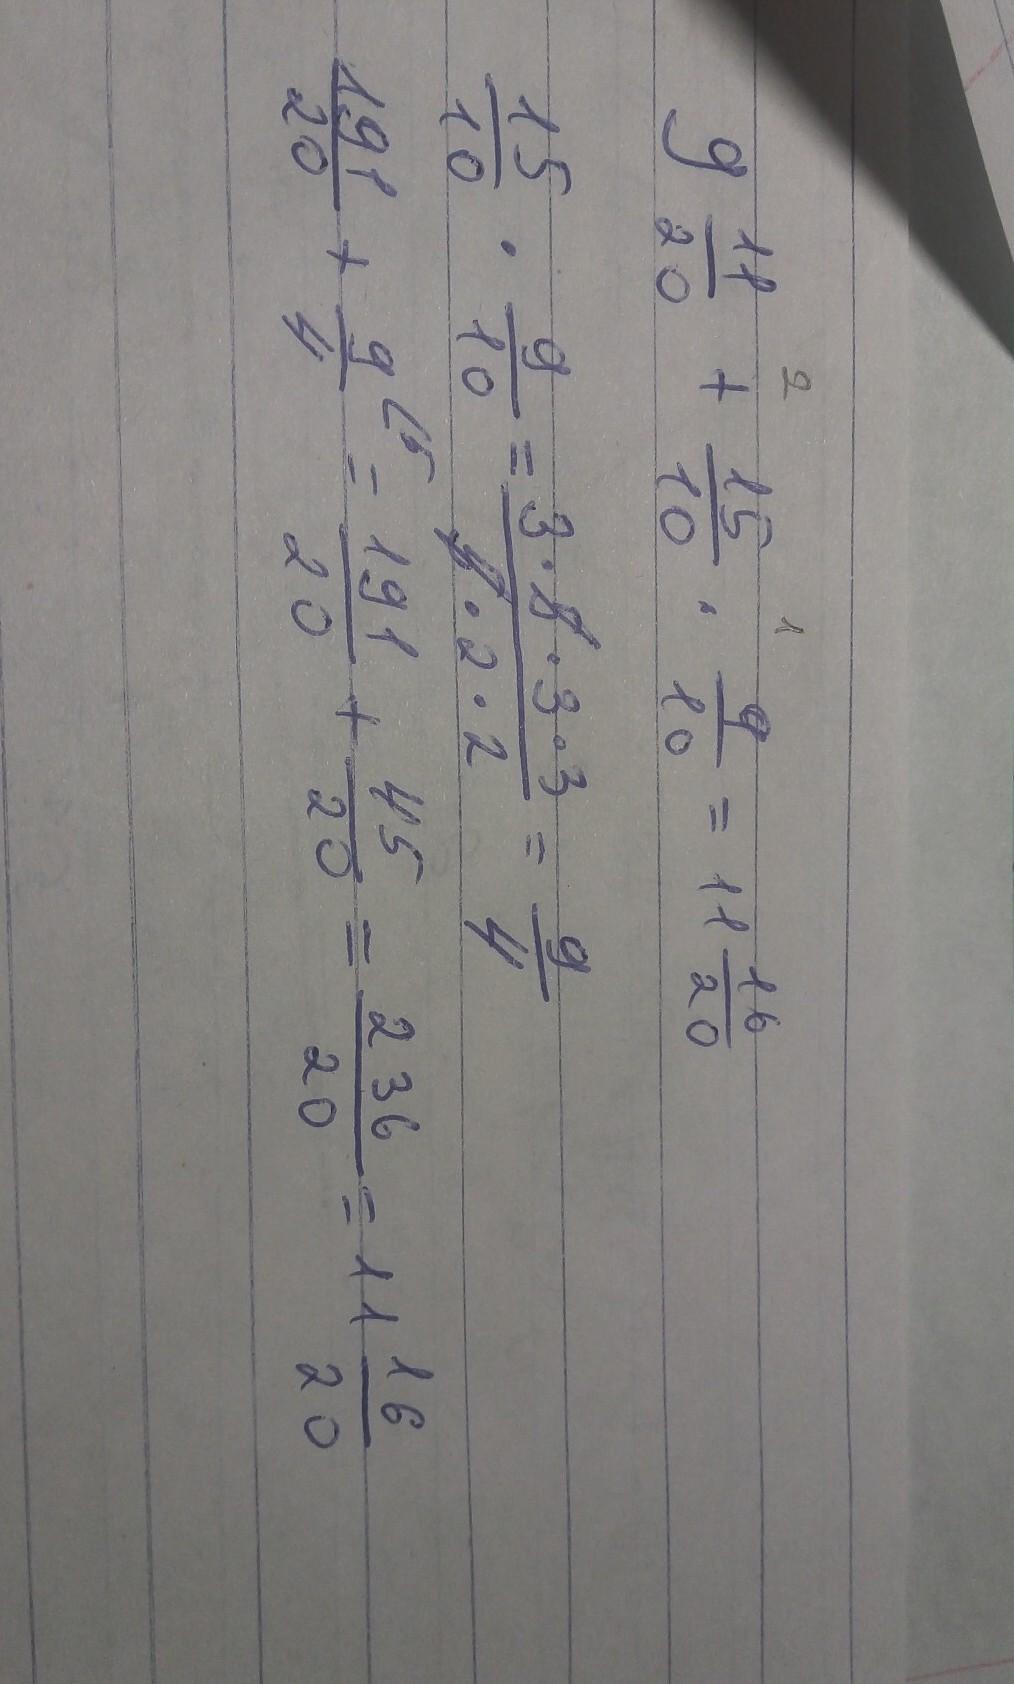 2 1
9 11/20 + 15/10 · 9/10 = 11 16/20
15/10 · 9/10 = 3·5·3·3/5·2·2 = 9/4
191/20 + 9/4 (5 = 191/20 + 45/20 = 236/20 = 11 16/20